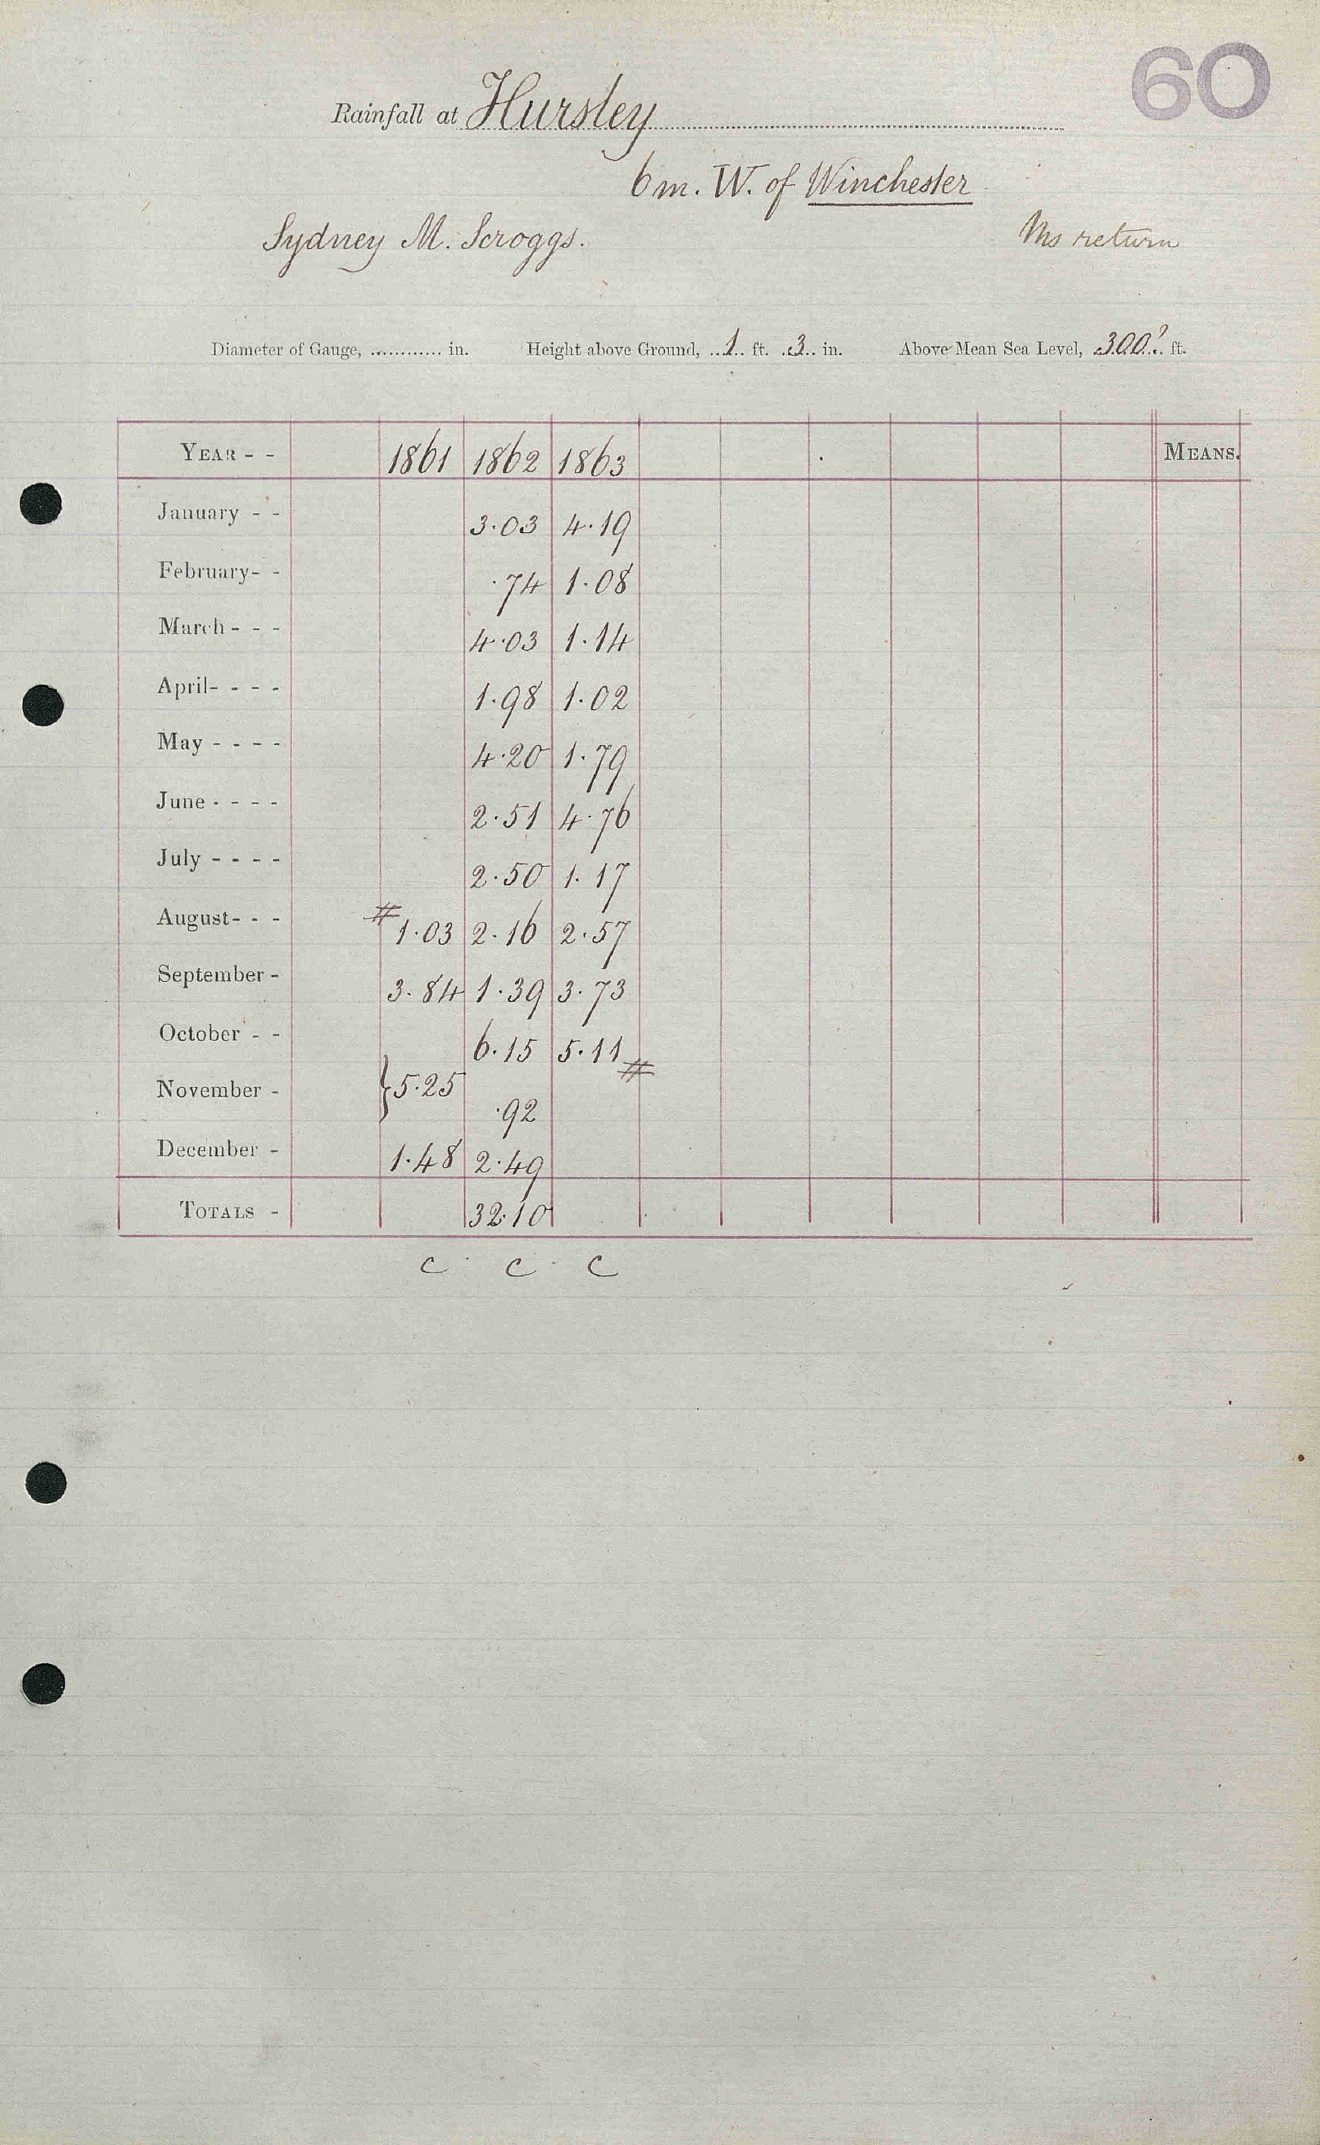 60
Rainfall at Hursley
6 m. W. of Winchester
Sydney M. Scroggs. Ms return
Diameter of Gauge, ............ in. Height above Ground, ..1.. ft. ..3.. in. Above Mean Sea Level, ..300?.. ft.
YEAR - - 1861 1862 1863 MEANS.
January - - 3.03 4.19
February - - .74 1.08
March - - - 4.03 1.14
April - - - - 1.98 1.02
May - - - - 4.20 1.79
June - - - - 2.51 4.76
July - - - - 2.50 1.17
August - - - # 1.03 2.16 2.57
September - 3.84 1.39 3.73
October - - 6.15 5.11 #
November - } 5.25 .92
December - 1.48 2.49
TOTALS - 32.10
C C C